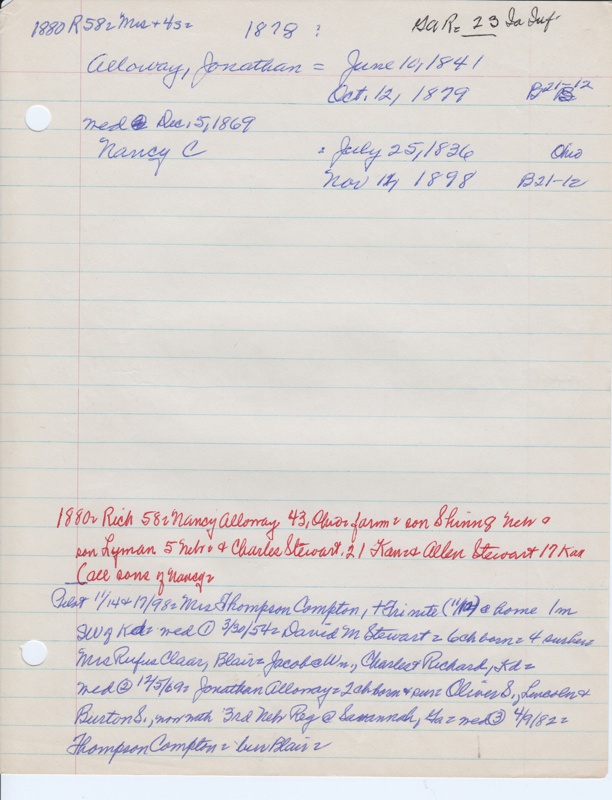 1880 R 58= Mrs + 4s= 1878 ? GAR= 23 Ia Inf.
Alloway, Jonathan = June 10, 1841
Oct. 12, 1879 B21-12
med Dec. 5, 1869
Nancy C = July 25, 1836 Ohio
Nov 12, 1898 B21-12
1880= Rich 58= Nancy Alloway 43, Ohio= farm= son 9 Nebr &
son Lyman 5 Nebr & Charles Stewart, 21 Kan= & Allen Stewart 17 Kan
(all sons of Nancy=
11/14 & 17/98= Mrs Thompson Compton, + Fri nite (11/12) @ home 1m
SW of Kd= med ① 3/30/54= David M Stewart = 6 ch born= 4
Mrs Rufus Claar, Blair= Jacob & Wm, Charles & Richard, Kd=
med ② 12/5/69= Jonathan Alloway= 2 ch born & sur= Oliver S., Lincoln &
Burton S., now with 3rd Nebr Reg @ Savannah, Ga= med ③ 4/9/82=
Thompson Compton= bur Blair=